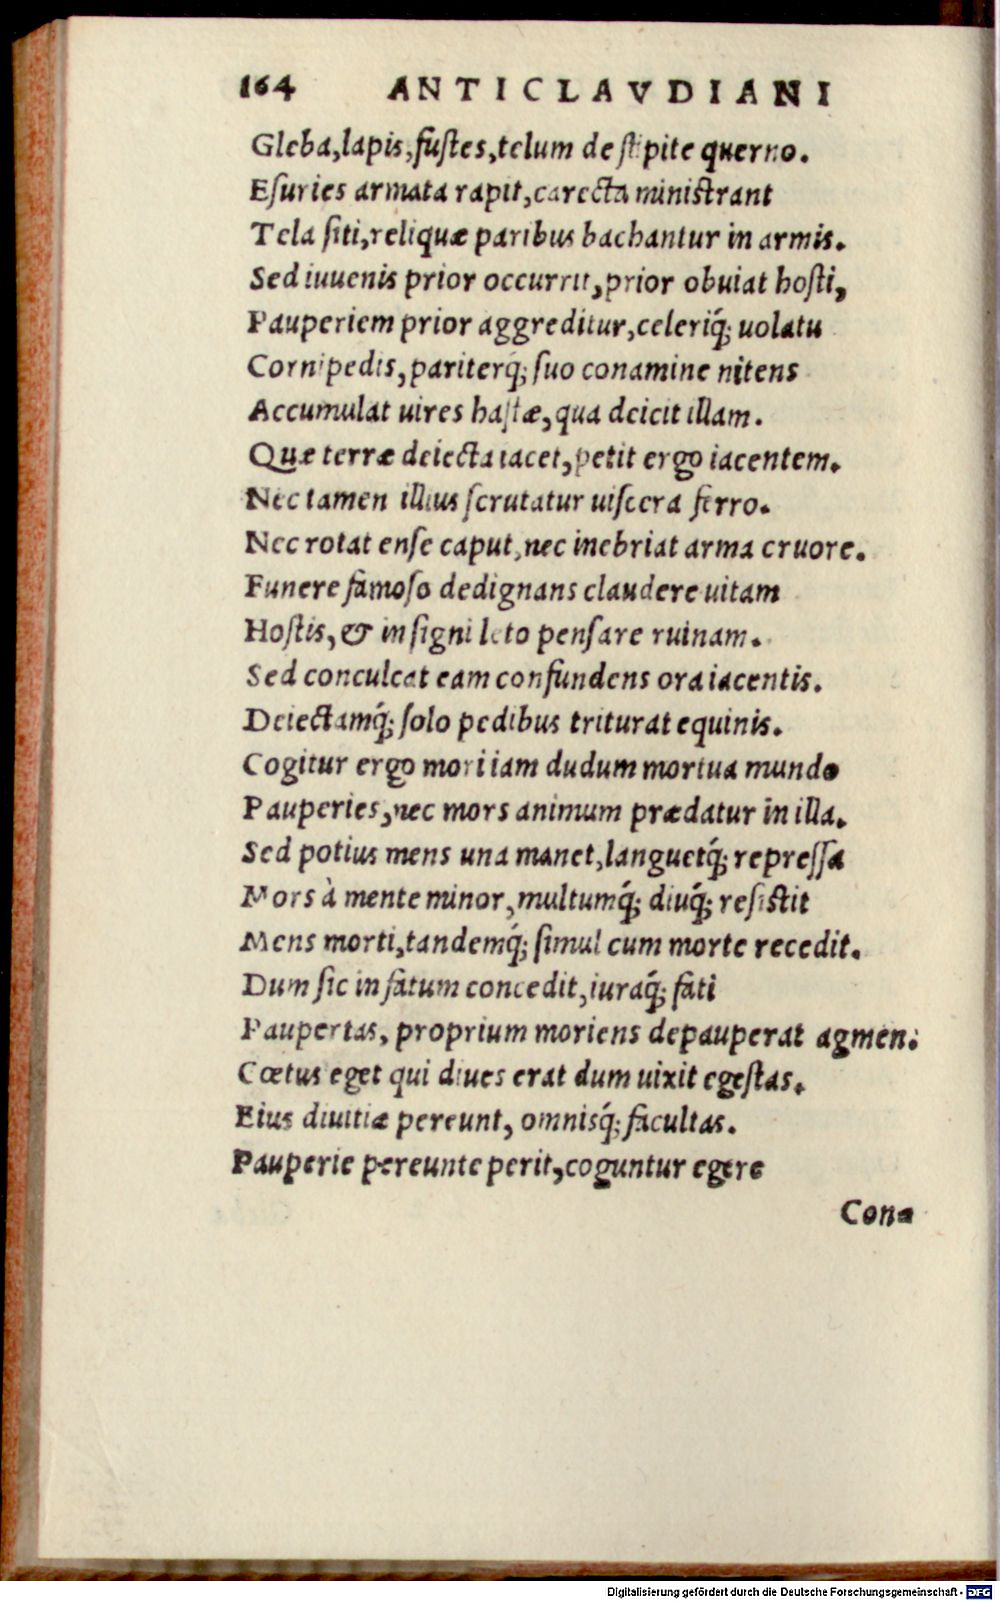 164 ANTICLAVDIANI
Gleba,lapis,fuſtes,telum de ſtipite querno.
Eſuries armata rapit,carecta miniſtrant
Tela ſiti,reliquæ paribus bachantur in armis.
Sed iuuenis prior occurrit,prior obuiat hoſti,
Pauperiem prior aggreditur,celeriq́; uolatu
Cornipedis,pariterq́; ſuo conamine nitens
Accumulat uires haſtæ,qua deicit illam.
Quæ terræ deiecta iacet,petit ergo iacentem.
Nec tamen illius ſcrutatur uiſcera ferro.
Nec rotat enſe caput,nec inebriat arma cruore.
Funere famoſo dedignans claudere uitam
Hoſtis,& inſigni leto penſare ruinam.
Sed conculcat eam confundens ora iacentis.
Deiectamq́; ſolo pedibus triturat equinis.
Cogitur ergo mori iam dudum mortua mundo
Pauperies,nec mors animum prædatur in illa.
Sed potius mens una manet,languetq́; repreſſa
Mors à mente minor,multumq́; diuq́; reſiſtit
Mens morti,tandemq́; ſimul cum morte recedit.
Dum ſic in fatum concedit,iuraq́; fati
Paupertas, proprium moriens depauperat agmen.
Cœtus eget qui diues erat dum uixit egeſtas.
Eius diuitiæ pereunt, omnisq́; facultas.
Pauperie pereunte perit,coguntur egere
Con-
Digitalisierung gefördert durch die Deutsche Forschungsgemeinschaft - DFG